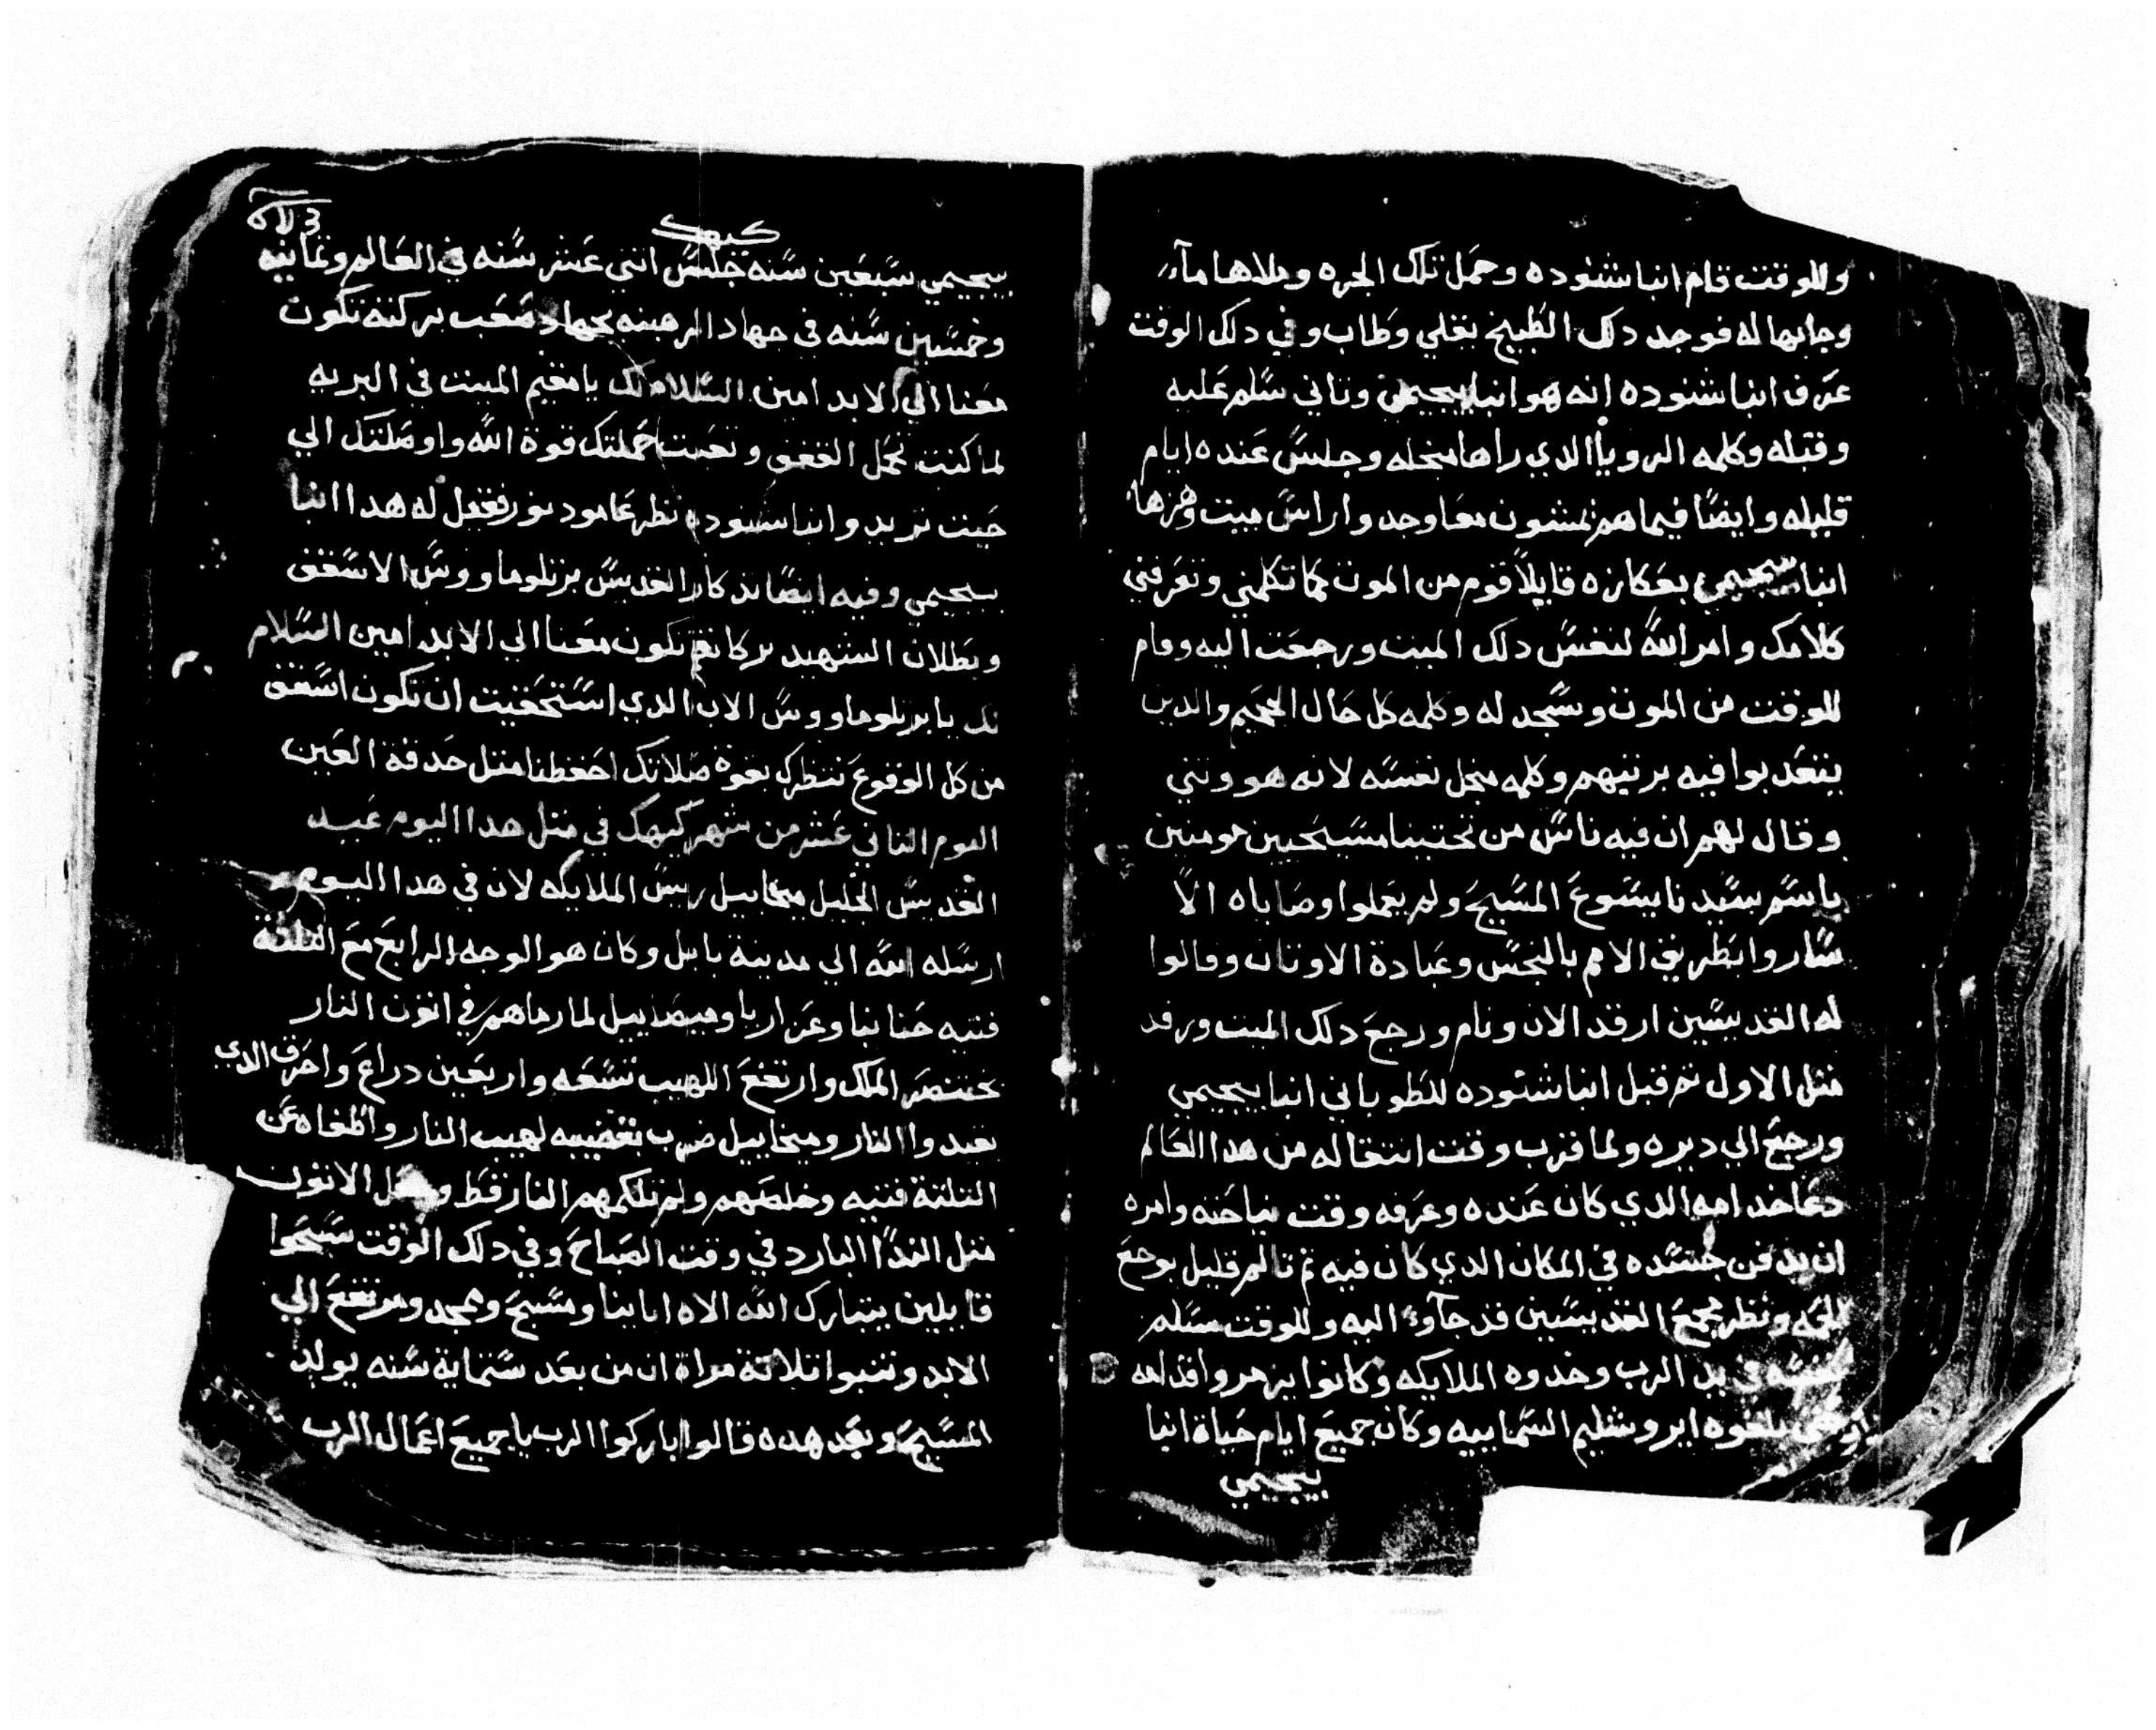 وللوقت قام انبا شنوده وحمل تلك الجره وملاها مآء
وجابها له فوجد دلك الطبيخ يغلي وطاب وفي دلك الوقت
عرف انبا شنوده انه هو انبا بيجيمي وتاني سلم عليه
وقبله وكلمه الرويا الدي راها منجله وجلس عنده ايام
قليله وايضا فيما هم يمشون معا وجدوا راس ميت وهزها
انبا بيجيمي بعكازه قايلا قوم من الموت كما تكلمني وتعرفني
كلامك وامر الله لنفس دلك الميت ورجعت اليه وقام
للوقت من الموت وسجد له وكلمه كل حال الجحيم والدين
يتعدبوا فيه برتبهم وكلمه منجل نفسه لانه هو وتني
وقال لهم ان فيه ناس من تحتينا مسيحيين مومنين
باسم سيدنا يسوع المسيح ولم يعملوا وصاياه الا
ساروا بطريق الامم بالنجس وعبادة الاوتان وقالوا
له القديسين ارقد الان ونام ورجع دلك الميت ورقد
متل الاول تم قبل انبا شنوده للطوباني انبا بيجيمي
ورجع الي ديره ولما قرب وقت انتقاله من هدا العالم
دعا خدامه الدي كان عنده وعرفه وقت نياحته وامره
ان يدفن جسده في المكان الدي كان فيه تم تالم قليل بوجع
الحمه ونظر مجمع القديسين قد جآوء اليه وللوقت سلم
نفسه في يد الرب وخدوه الملايكه وكانوا يزمروا قدامه
حتي بلغوه ايروشليم السمايبه وكان جميع ايام حياة انبا
بيجيمي
كيهك
بيجيمي سبعين سنه جلس اتني عشر سنه في العالم وتمانيه
وخمسين سنه في جهاد الرهبنه بجهاد صعب بركته تكون
معنا الي الابد امين السلام لك يا مقيم الميت في البريه
لما كنت تحمل القفف وتعبت حملتك قوة الله واوصلتك الي
حيت تريد وانبا شنوده نظر عامود نور فقيل له هدا انبا
بيجيمي وفيه ايضا تدكار القديس برتلوماووس الاسقف
وبطلان الشهيد بركاتهم تكون معنا الي الابد امين السلام
لك يا برتلوماووس الاب الدي استحقيت ان تكون اسقف
من كل الوقوع ننتظرك بقوة صلاتك احفظنا متل حدقة العين
اليوم التاني عشر من شهر كيهك في متل هدا اليوم عيد
القديس الجليل ميخاييل ريس الملايكه لان في هدا اليوم
ارسله الله الي مدينة بابل وكان هو الوجه الرابع مع التلتة
فتيه حنانيا وعزاريا وميصاييل لما رماهم في اتون النار
بختنصر الملك وارتفع اللهيب تسعه واربعين دراع واحرق الدي
يقيدوا النار وميخاييل ضرب بقضيبه لهيب النار واطفاه عن
التلتة فتيه وخلصهم ولم تلكمهم النار قط الاتون
متل الندا البارد في وقت الصباح وفي دلك الوقت سبحوا
قايلين يتبارك الله الاه ابايينا ومسبح وممجد ومرتفع الي
الابد وتنبوا تلاتة مراة ان من بعد ستماية سنه يولد
المسيح وبعد هده قالوا باركوا الرب يا جميع اعمال الرب